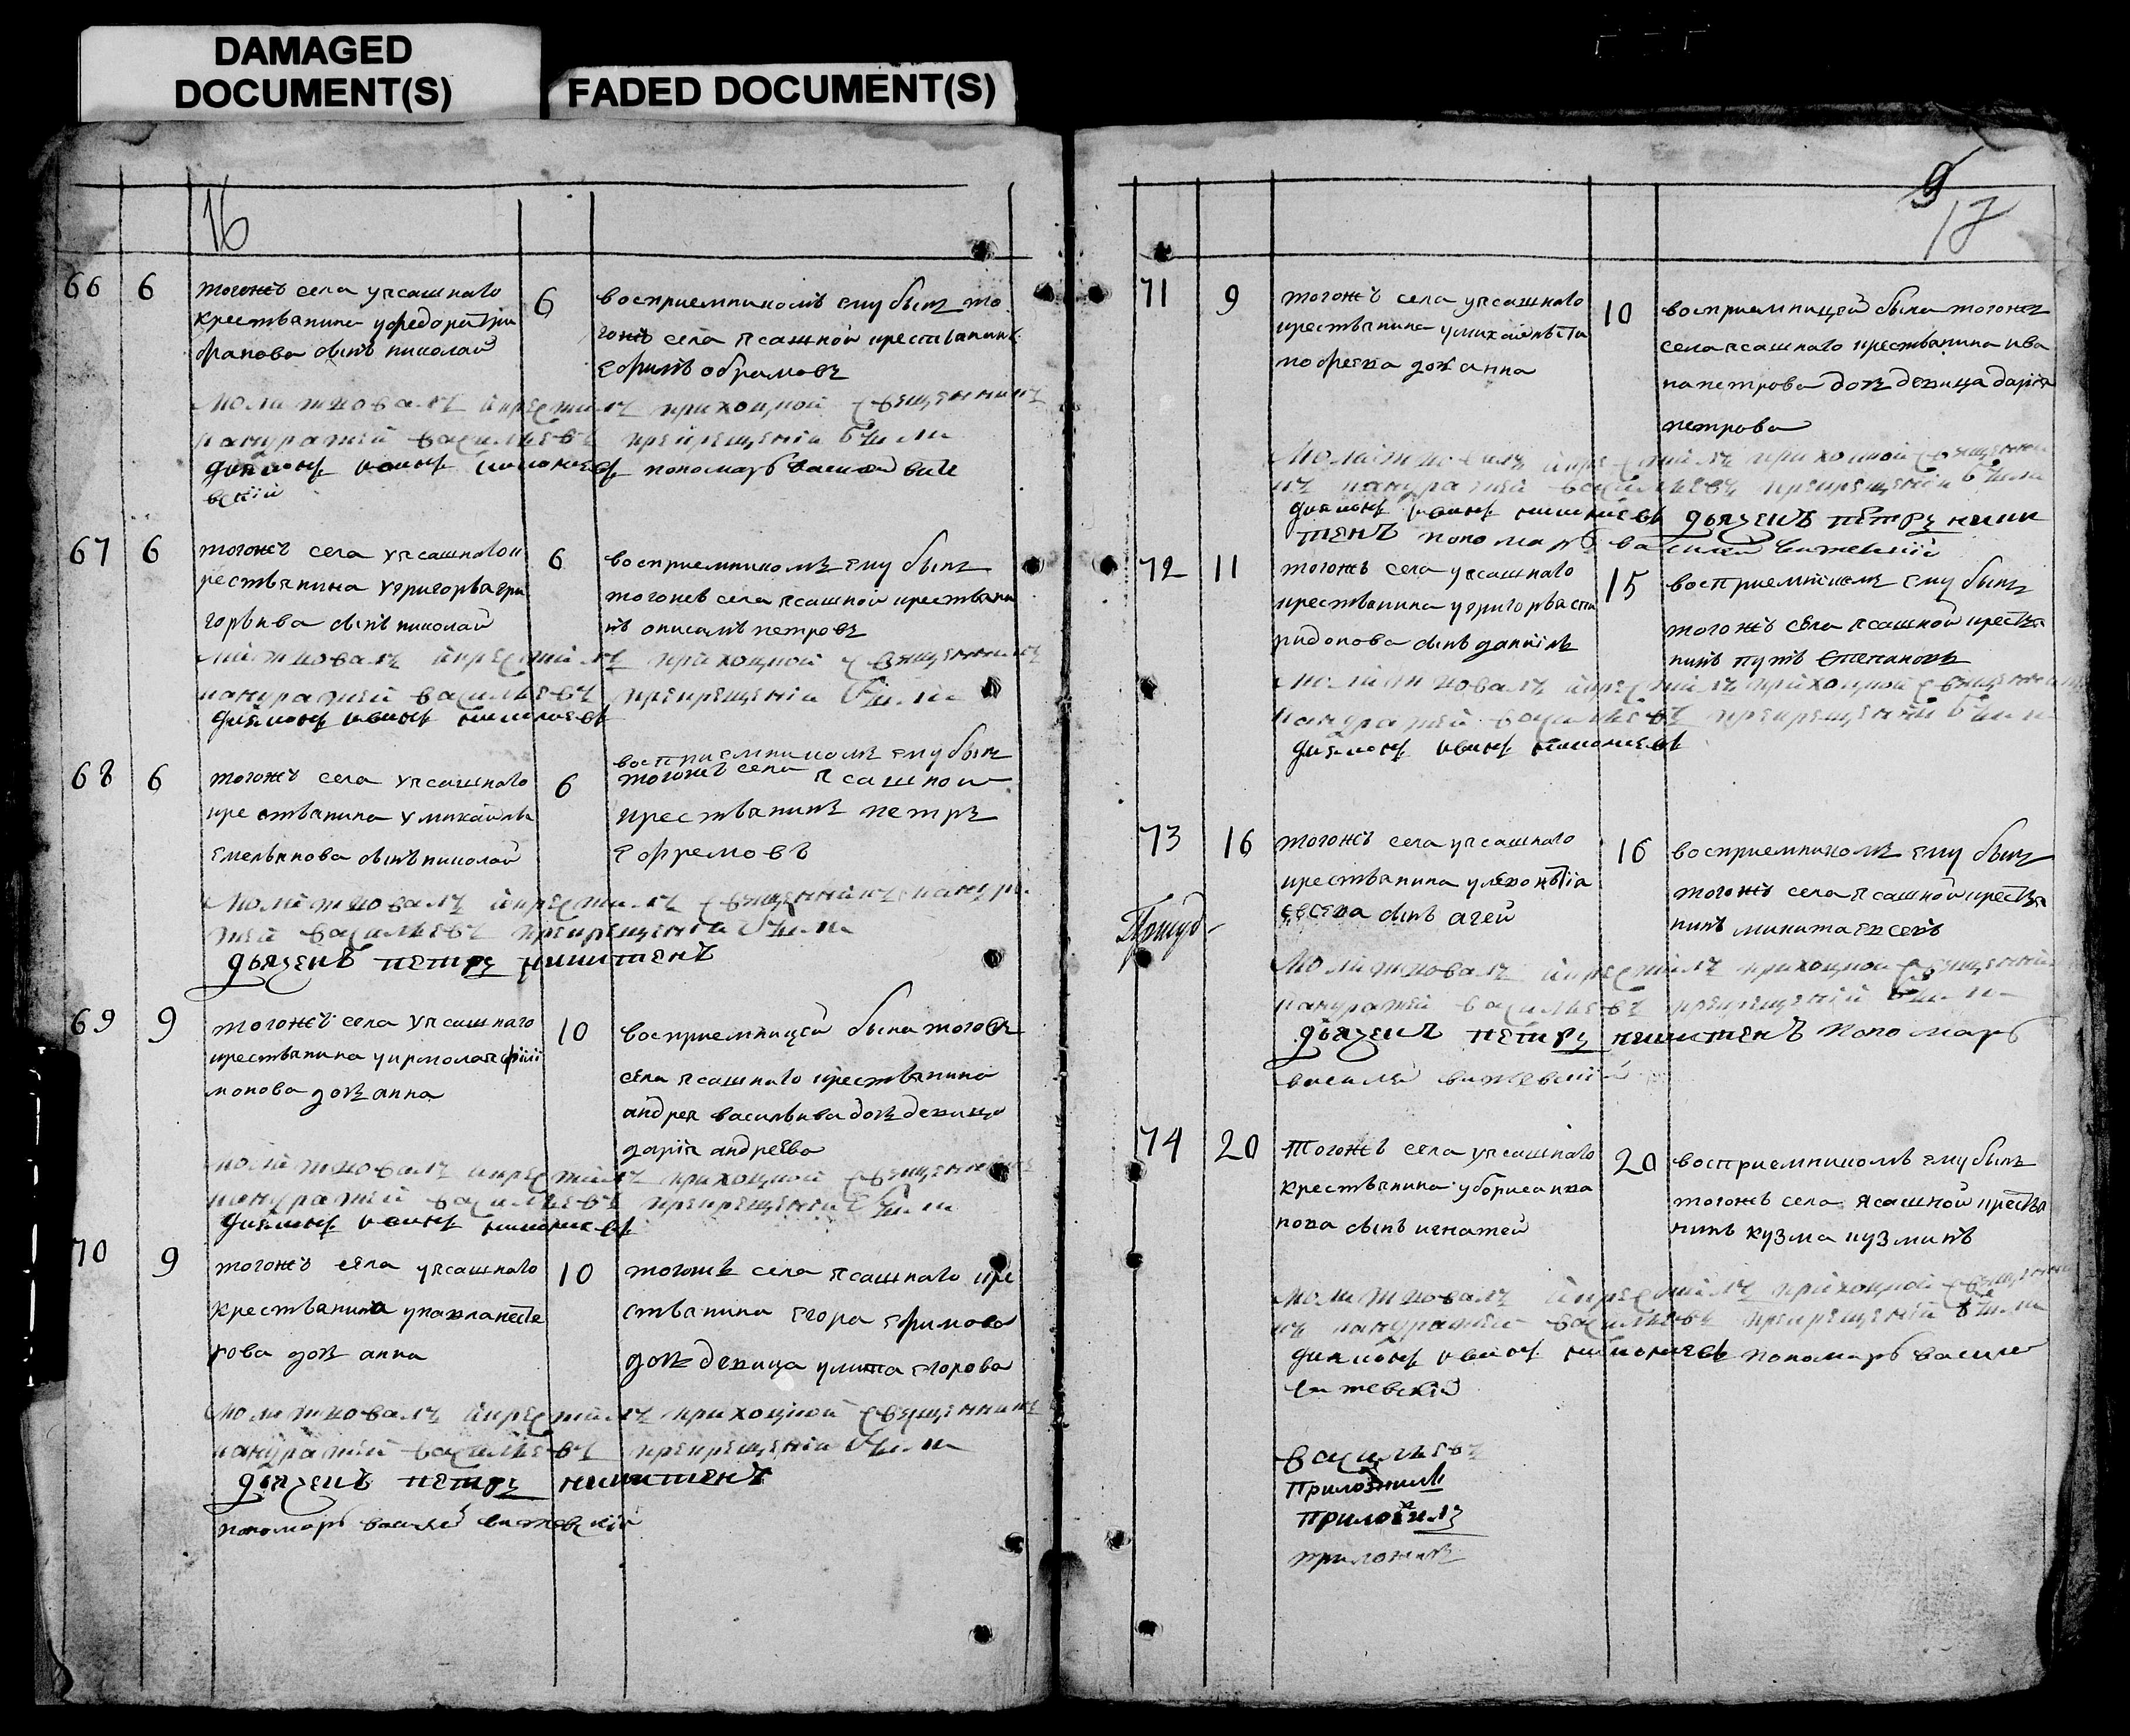 DAMAGED
DOCUMENT(S)
FADED DOCUMENT(S)
16
66 6 тогожъ села уясашнаго
крестьянина уфедора
фанова сынъ николай
6 восприемникомъ ему былъ то
гожъ села ясашной крестьянинъ
ефимъ обрамовъ
молитвовалъ и крестилъ приходной священникъ
панкратей васильевъ при крещении были
диаконъ иванъ пономарь василей вите
вский
67 6 тогожъ села уясашнаго к
рестьянина угригорья гри
горьива сынъ николай
6 восприемникомъ ему былъ
тогожъ села ясашной крестьяни
нъ описамъ петровъ
молитвовалъ и крестилъ приходной священникъ
панкратей васильевъ при крещении были
диаконъ иванъ
68 6 тогожъ села уясашнаго
крестьянина умихайлы
емельянова сынъ николай
6 восприемникомъ ему былъ
тогожъ села ясашной
крестьянинъ петръ
ефремовъ
молитвовалъ и крестилъ священникъ панкра
тей васильевъ при крещении были
дьячекъ петръ никитинъ
69 9 тогожъ села уясашнаго
крестьянина уирмолая фили
монова дочь анна
10 восприемницей была тогожъ
села ясашнаго крестьянина
андрея васильива дочь девица
дария андреева
молитвовалъ и крестилъ приходной священникъ
панкратей васильевъ при крещении были
диаконъ иванъ
70 9 тогожъ села уясашнаго
крестьянина упавла несте
рова дочь анна
10 тогожъ села ясашнаго кре
стьянина егора ефимова
дочь девица улита егорова
молитвовалъ и крестилъ приходной священникъ
панкратей васильевъ при крещении были
дьячекъ петръ никитинъ
пономарь василей витевский
9
17
71 9 тогожъ села уясашнаго
крестьянина умихайлы
дочь анна
10 восприемницей была тогожъ
села ясашнаго крестьянина ива
на петрова дочь девица дария
петрова
молитвовалъ и крестилъ приходной священни
къ панкратей васильевъ при крещении были
диаконъ иванъ дьячекъ петръ ники
тинъ пономарь василей витевский
72 11 тогожъ села уясашнаго
крестьянина угригорья спи
ридонова сынъ даниилъ
15 восприемникомъ ему былъ
тогожъ села ясашной крестья
нинъ степановъ
молитвовалъ и крестилъ приходной священникъ
панкратей васильевъ при крещении были
диаконъ иванъ
73 16 тогожъ села уясашнаго
крестьянина улеонтиа
евсева сынъ агей
16 восприемникомъ ему былъ
тогожъ села ясашной крестья
нинъ микита евсевъ
молитвовалъ и крестилъ приходной священникъ
панкратей васильевъ при крещении были
дьячекъ петръ никитинъ пономарь
василей витевский
74 20 тогожъ села уясашнаго
крестьянина убориса ива
нова сынъ игнатей
20 восприемникомъ ему былъ
тогожъ села ясашной крестья
нинъ кузма кузминъ
молитвовалъ и крестилъ приходной священни
къ панкратей васильевъ при крещении были
диаконъ иванъ пономарь василей
витевский
васильевъ
приложилъ
приложилъ
приложилъ